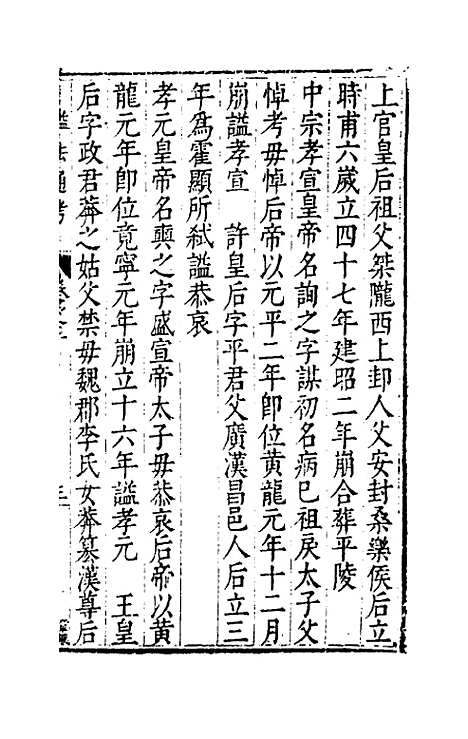 上官皇后祖父桀隴西上邽人父安封桑樂侯后立
時甫六歲立四十七年建昭二年崩合葬平陵
中宗孝宣皇帝名詢之字謀初名病巳祖戾太子父
悼考毋悼后帝以元平二年卽位黄龍元年十二月
崩謚孝宣　許皇后字平君父廣漢昌邑人后立三
年爲霍顯所弑謚恭哀
孝元皇帝名奭之字盛宣帝太子毋恭哀后帝以黄
龍元年卽位竟寧元年崩立十六年謚孝元　王皇
后字政君莽之姑父禁毋魏郡李氏女莽簒漢尊后
謚法通考